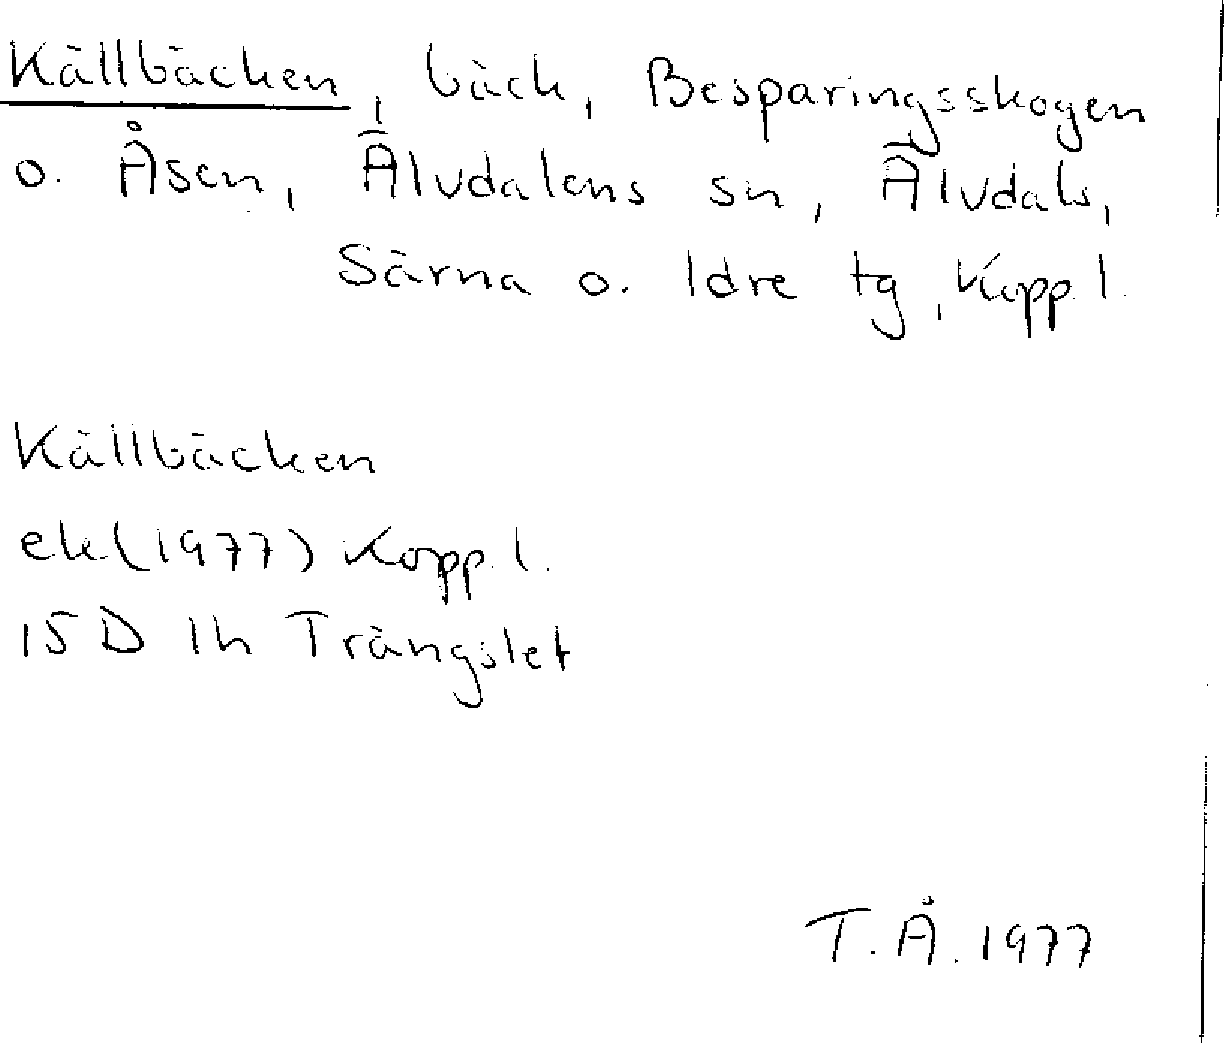 Källbäcken, bäck, Besparingsskogen
o. Åsen, Älvdalens sn, Älvdals,
Särna o. Idre tg, Kopp. l.
Källbäcken
ek (1977) Kopp. l.
15 D 1h Trängslet
T. Å. 1977